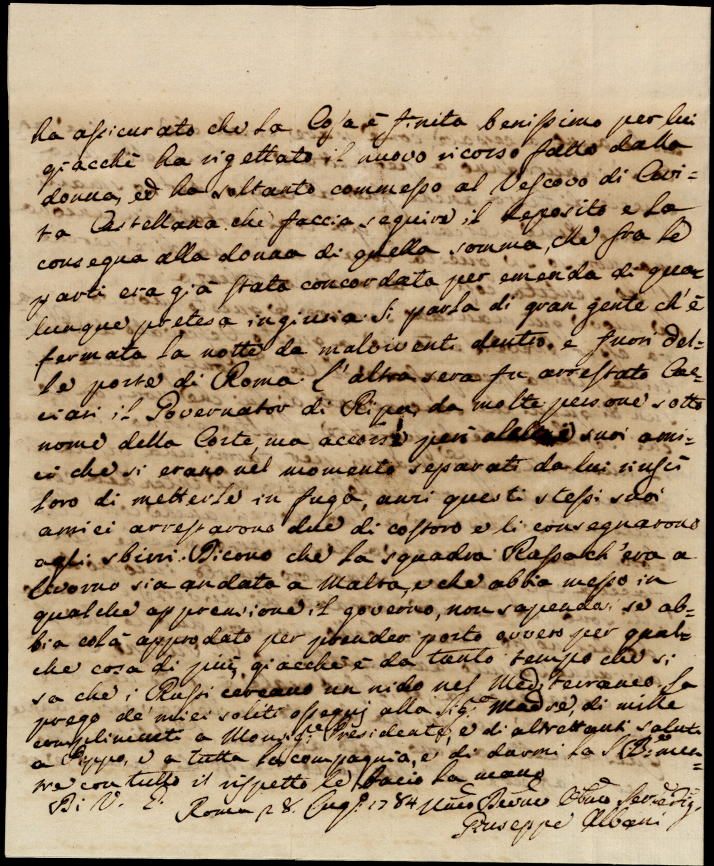 ha assicurato che la Cosa è finita benissimo per lui
giacchè ha rigettato il nuovo ricorso fatto dalla
donna, ed ha soltanto commesso al Vescovo di Civi=
ta Castellana che faccia seguire il deposito e la
consegna alla donna di quella somma, che fra le
parti era già stata concordata per emenda di qua=
lunque pretesa ingiuria. Si parla di gran gente ch'è
fermata la notte da malviventi dentro, e fuori del=
le porte di Roma. L'altra sera fu arrestato Cac=
ciari il Governator di Ripa, da molte persone sotto
nome della Corte, ma accorsi però suoi ami=
ci che si erano nel momento separati da lui riuscì
loro di metterle in fuga, anzi questi stessi suoi
amici arrestarono due di costoro e li consegnarono
agli sbirri. Dicono che la squadra Russa ch'era a
Livorno sia andata a Malta, e che abbia messo in
qualche apprensione il governo, non sapendosi se ab=
bia colà approdato per prender porto ovvero per qual=
che cosa di più, giacchè è da tanto tempo che si
sa che i Russi cercano un nido nel Mediterraneo. La
prego de' miei soliti ossequj alla Sig.ra Madre, di mille
complimenti a Monsig.re Presidente, e di altrettanti saluti
a Peppo, e a tutta la compagnia, e di darmi la S. B.ne men=
tre con tutto il rispetto le bacio la mano
Di V. E.
Roma 28. Lug.o 1784
Giuseppe Albani